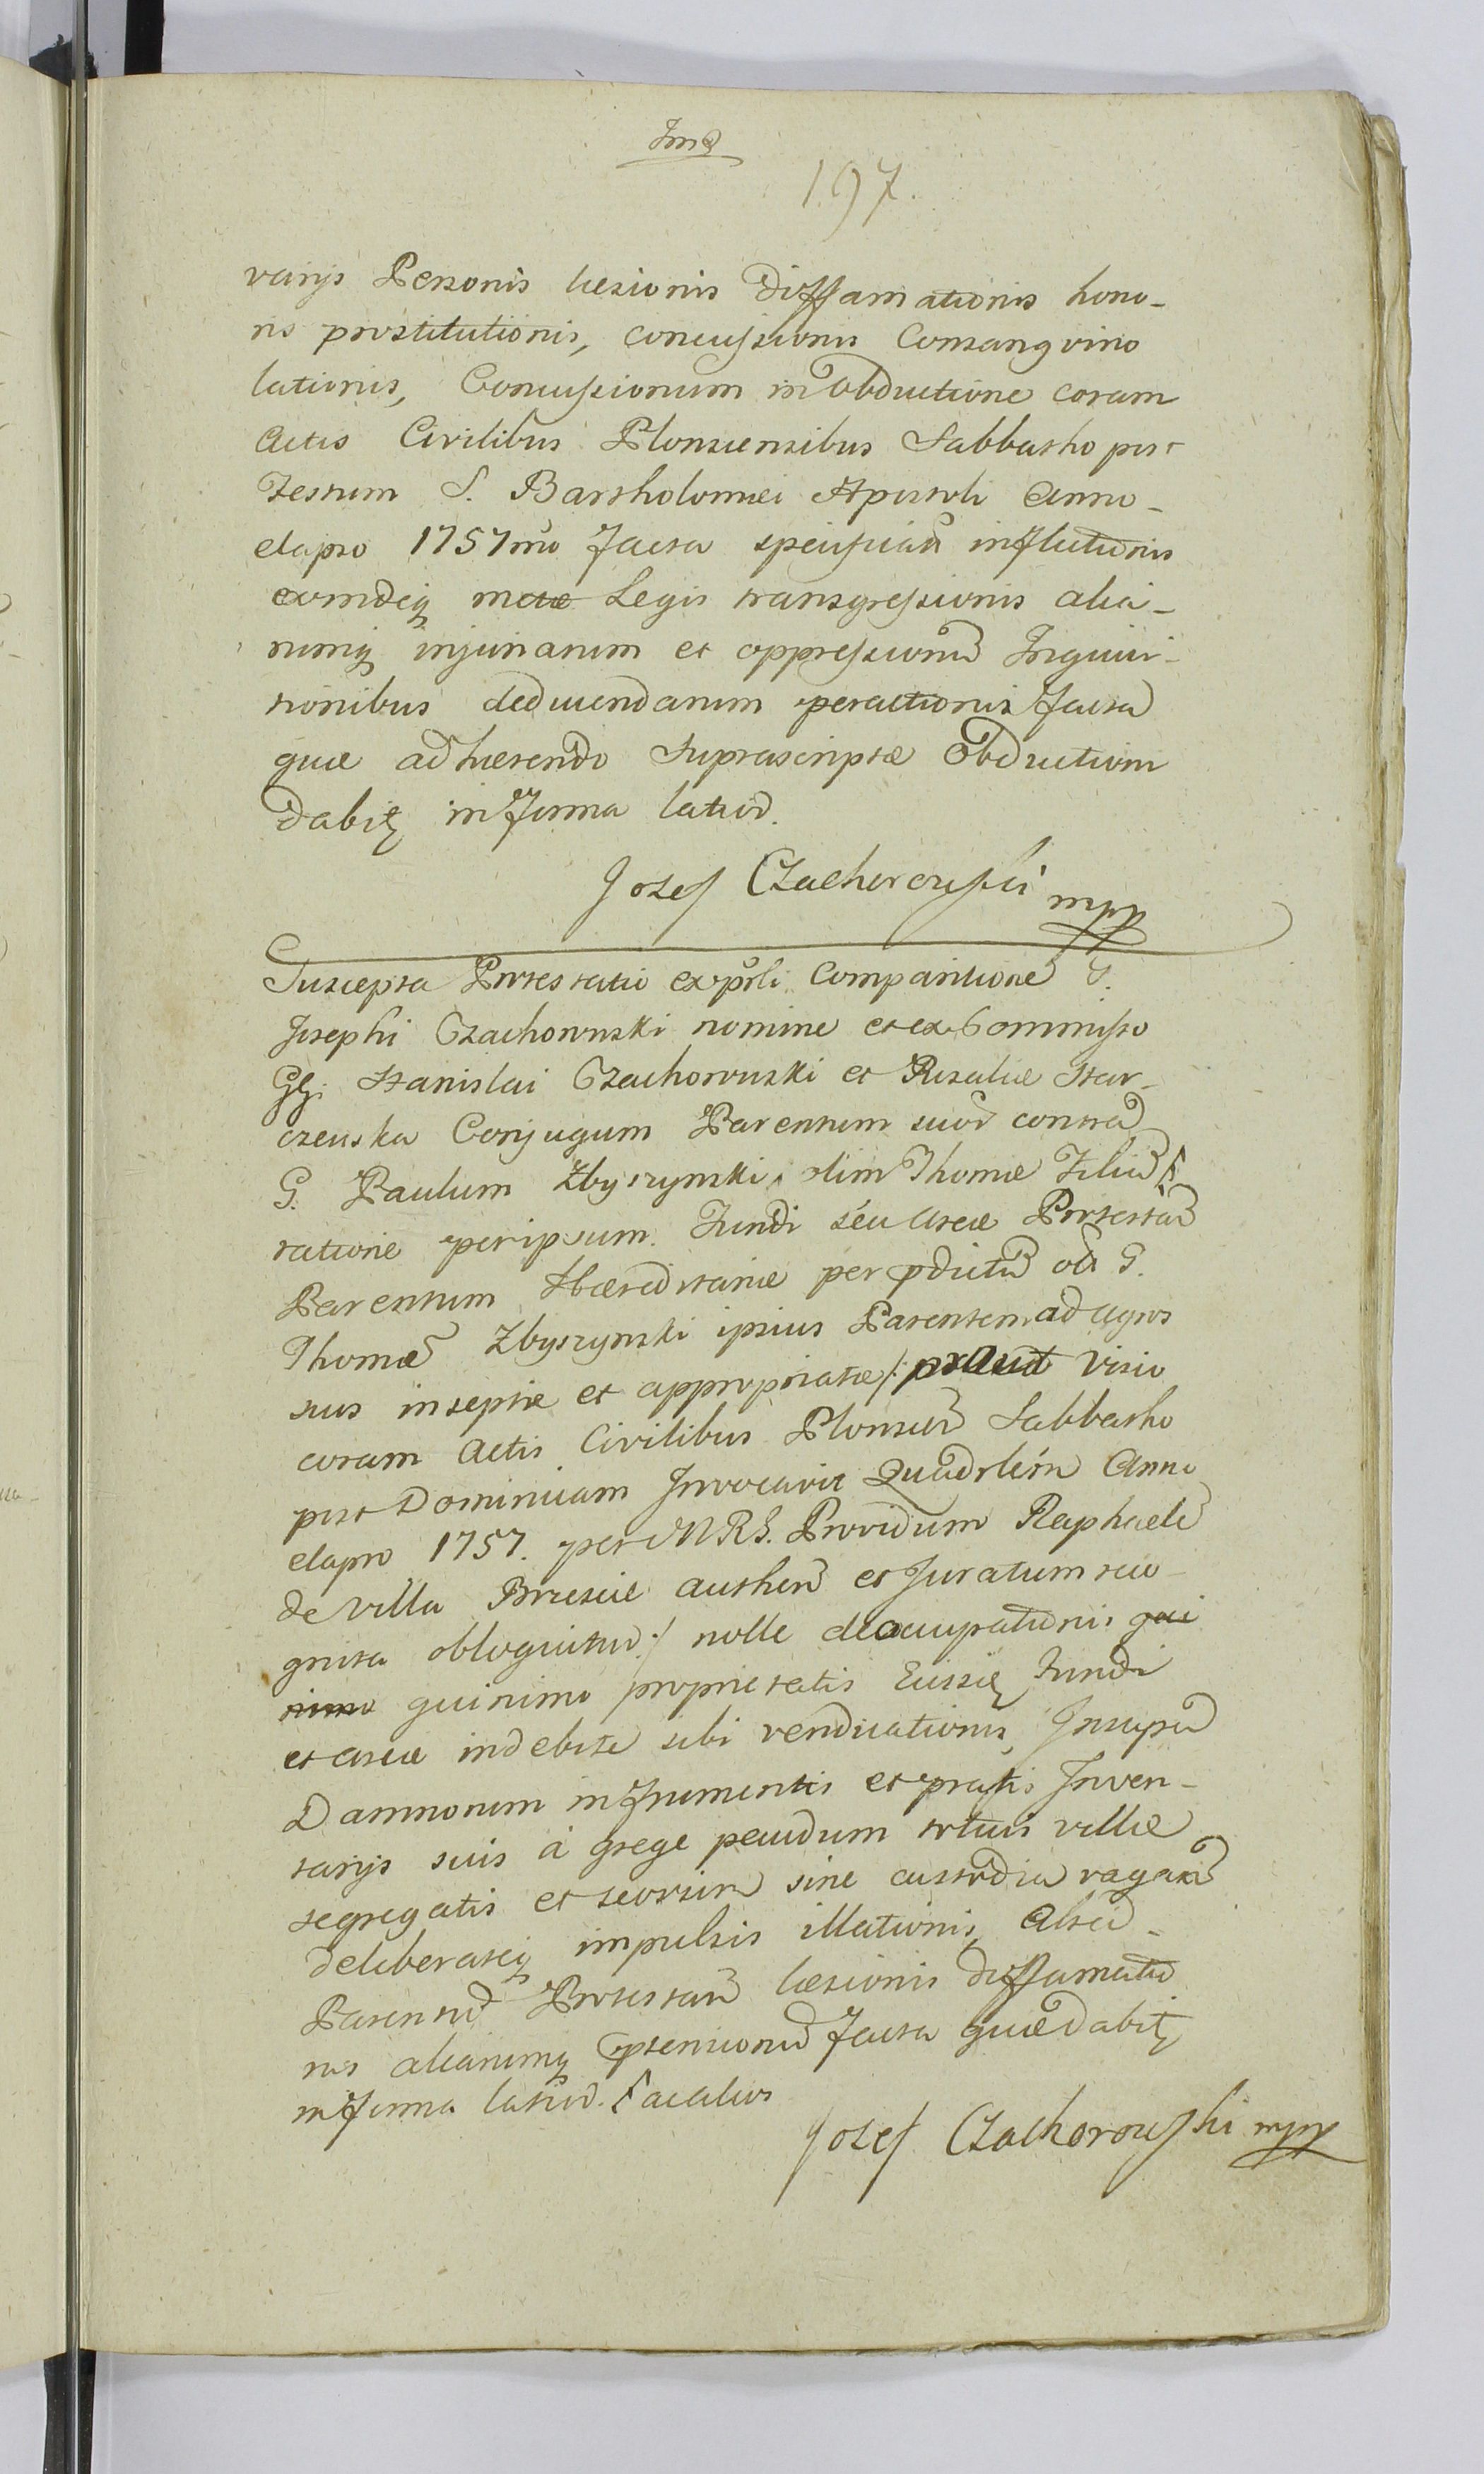 197.
varijs Personis læsionis diffamationis hono-
ris prostitutionis, concussionis Consangvino
lationis, Concussionum in Obductione coram
Actis Civilibus Plonscensibus Sabbatho post
Festum S. Bartholomæi Apostoli Anno-
elapso 1757mo facta specificatũ inflictionis
eorumdeq₃ Legis transgressionis alia-
rumq₃ injuriarum et oppressionũ Inquisi-
tionibus deducendarum peractionis facta
quæ adhærendo suprascriptæ Obductioni
dabit₃ in forma latiori.
Jozef Czachorowski mpp
Suscepta Protestatio ex psli Comparitione G.
Josephi Czachorowski nomine et ex Commisso
GG. Stanislai Czachorowski et Rosaliæ Star-
czewska Conjugum Parentum suor̃ contra
G. Paulum Zbyszynski olim Thomæ Filiũ
ratione per ipsum Fundi seu Areæ Protestañ
Parentum Hæreditariæ per pdictũ olĩ G.
Thomã Zbyszynski ipsius Parentem ad agros
suos inseptæ et appropriatæ /: prout Visio
coram Actis Civilibus Plonscen̄ Sabbatho
post Dominicam Invocavit Quadrlem Anno
elapso 1757. per MRS. Providum Raphaelẽ
de Villa Brzescie authen̄ et Juratum reco-
gnita obloquitur :/ nolle deoccupationis qui
nimo quinimo proprietatis Fundi
et Areæ indebite sibi vendicationis, Insuper
Damnorum in frumentis et pratis Inven-
tarijs suis à grege pecudum totius villæ
segregatis et seorsim sine custodia vagañ
deliberateq₃ impulsis illationis, Alter-
Parentũ Protestañ læsionis diffamatio
nis aliarumq₃ ptensionũ facta quæ dabit₃
in forma latiori.
Jozef Czachorowski mpp